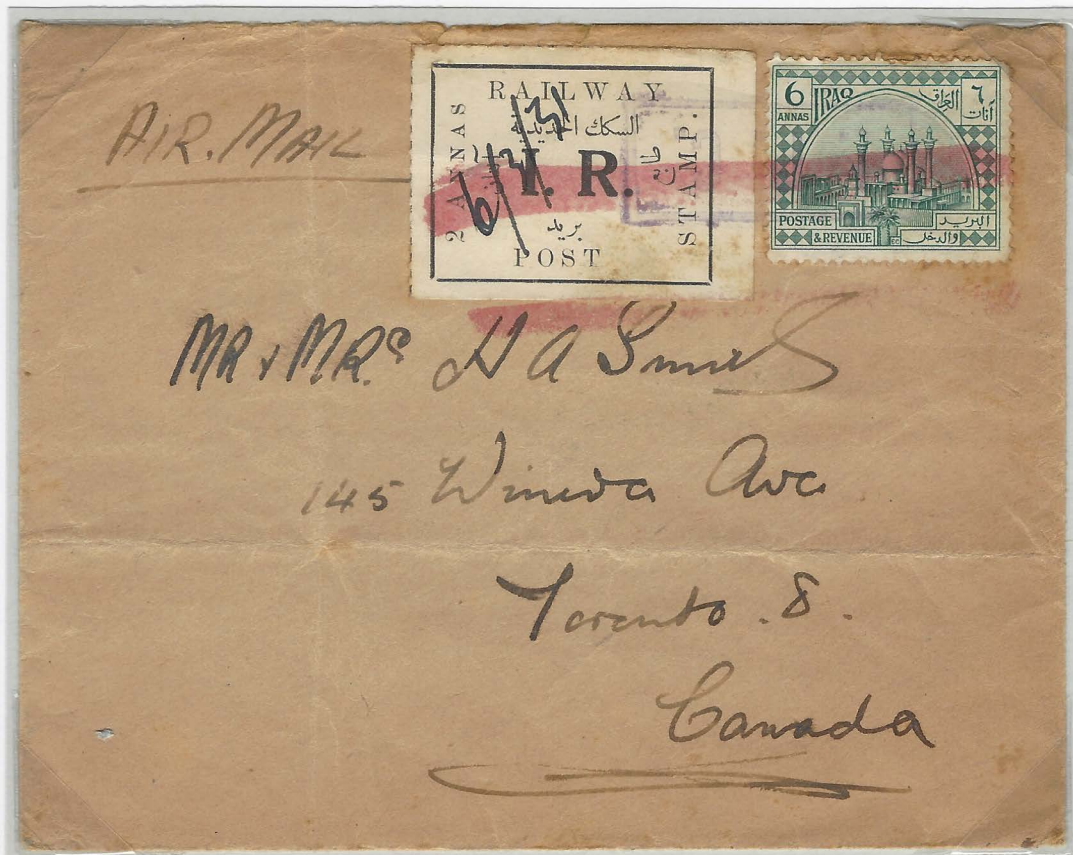 AIR. MAIL
RAILWAY
السكك الحديدية
2 ANNAS
I. R.
STAMP.
بريد
POST
6/3/31
6 ANNAS
IRAQ
العراق
٦ آنات
POSTAGE & REVENUE
البريد والدخل
MR & MRS H A
145 Wineva Ave
Toronto. 8.
Canada